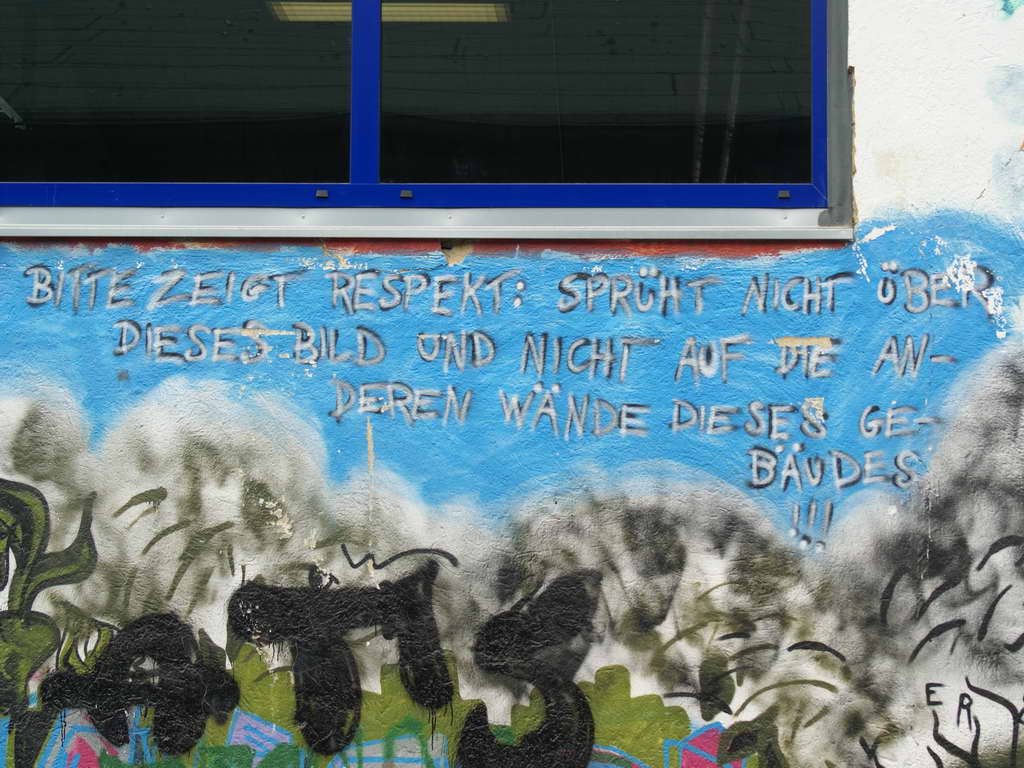 BITTE ZEIGT RESPEKT: SPRÜHT NICHT ÜBER
DIESES BILD UND NICHT AUF DIE AN-
DEREN WÄNDE DIESES GE-
BÄUDES
!!!
ER